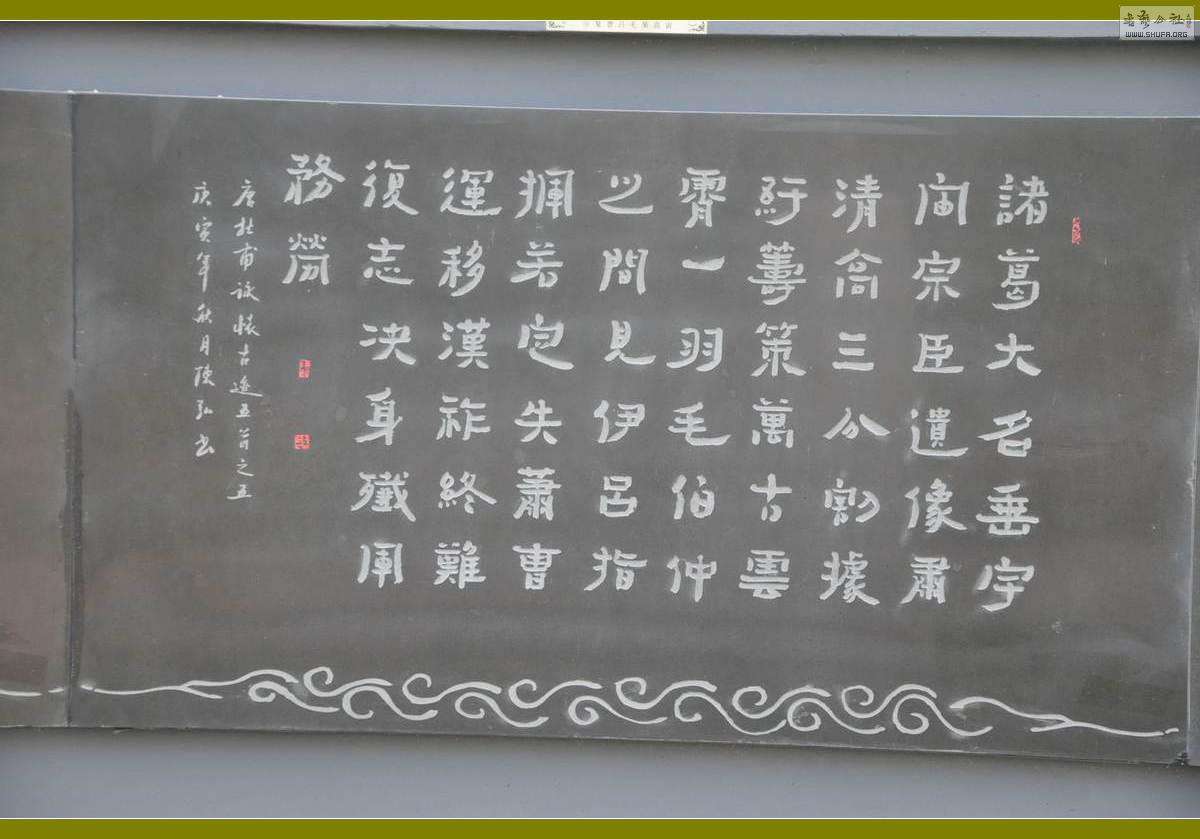 諸葛大名垂宇
宙宗臣遺像肅
清高三分割據
紆籌策萬古雲
霄一羽毛伯仲
之間見伊呂指
揮若定失蕭曹
運移漢祚終難
復志决身殲軍
務勞
唐杜甫詠懷古迹五首之五
庚寅年秋月陳弘書
WWW.SHUFA.ORG